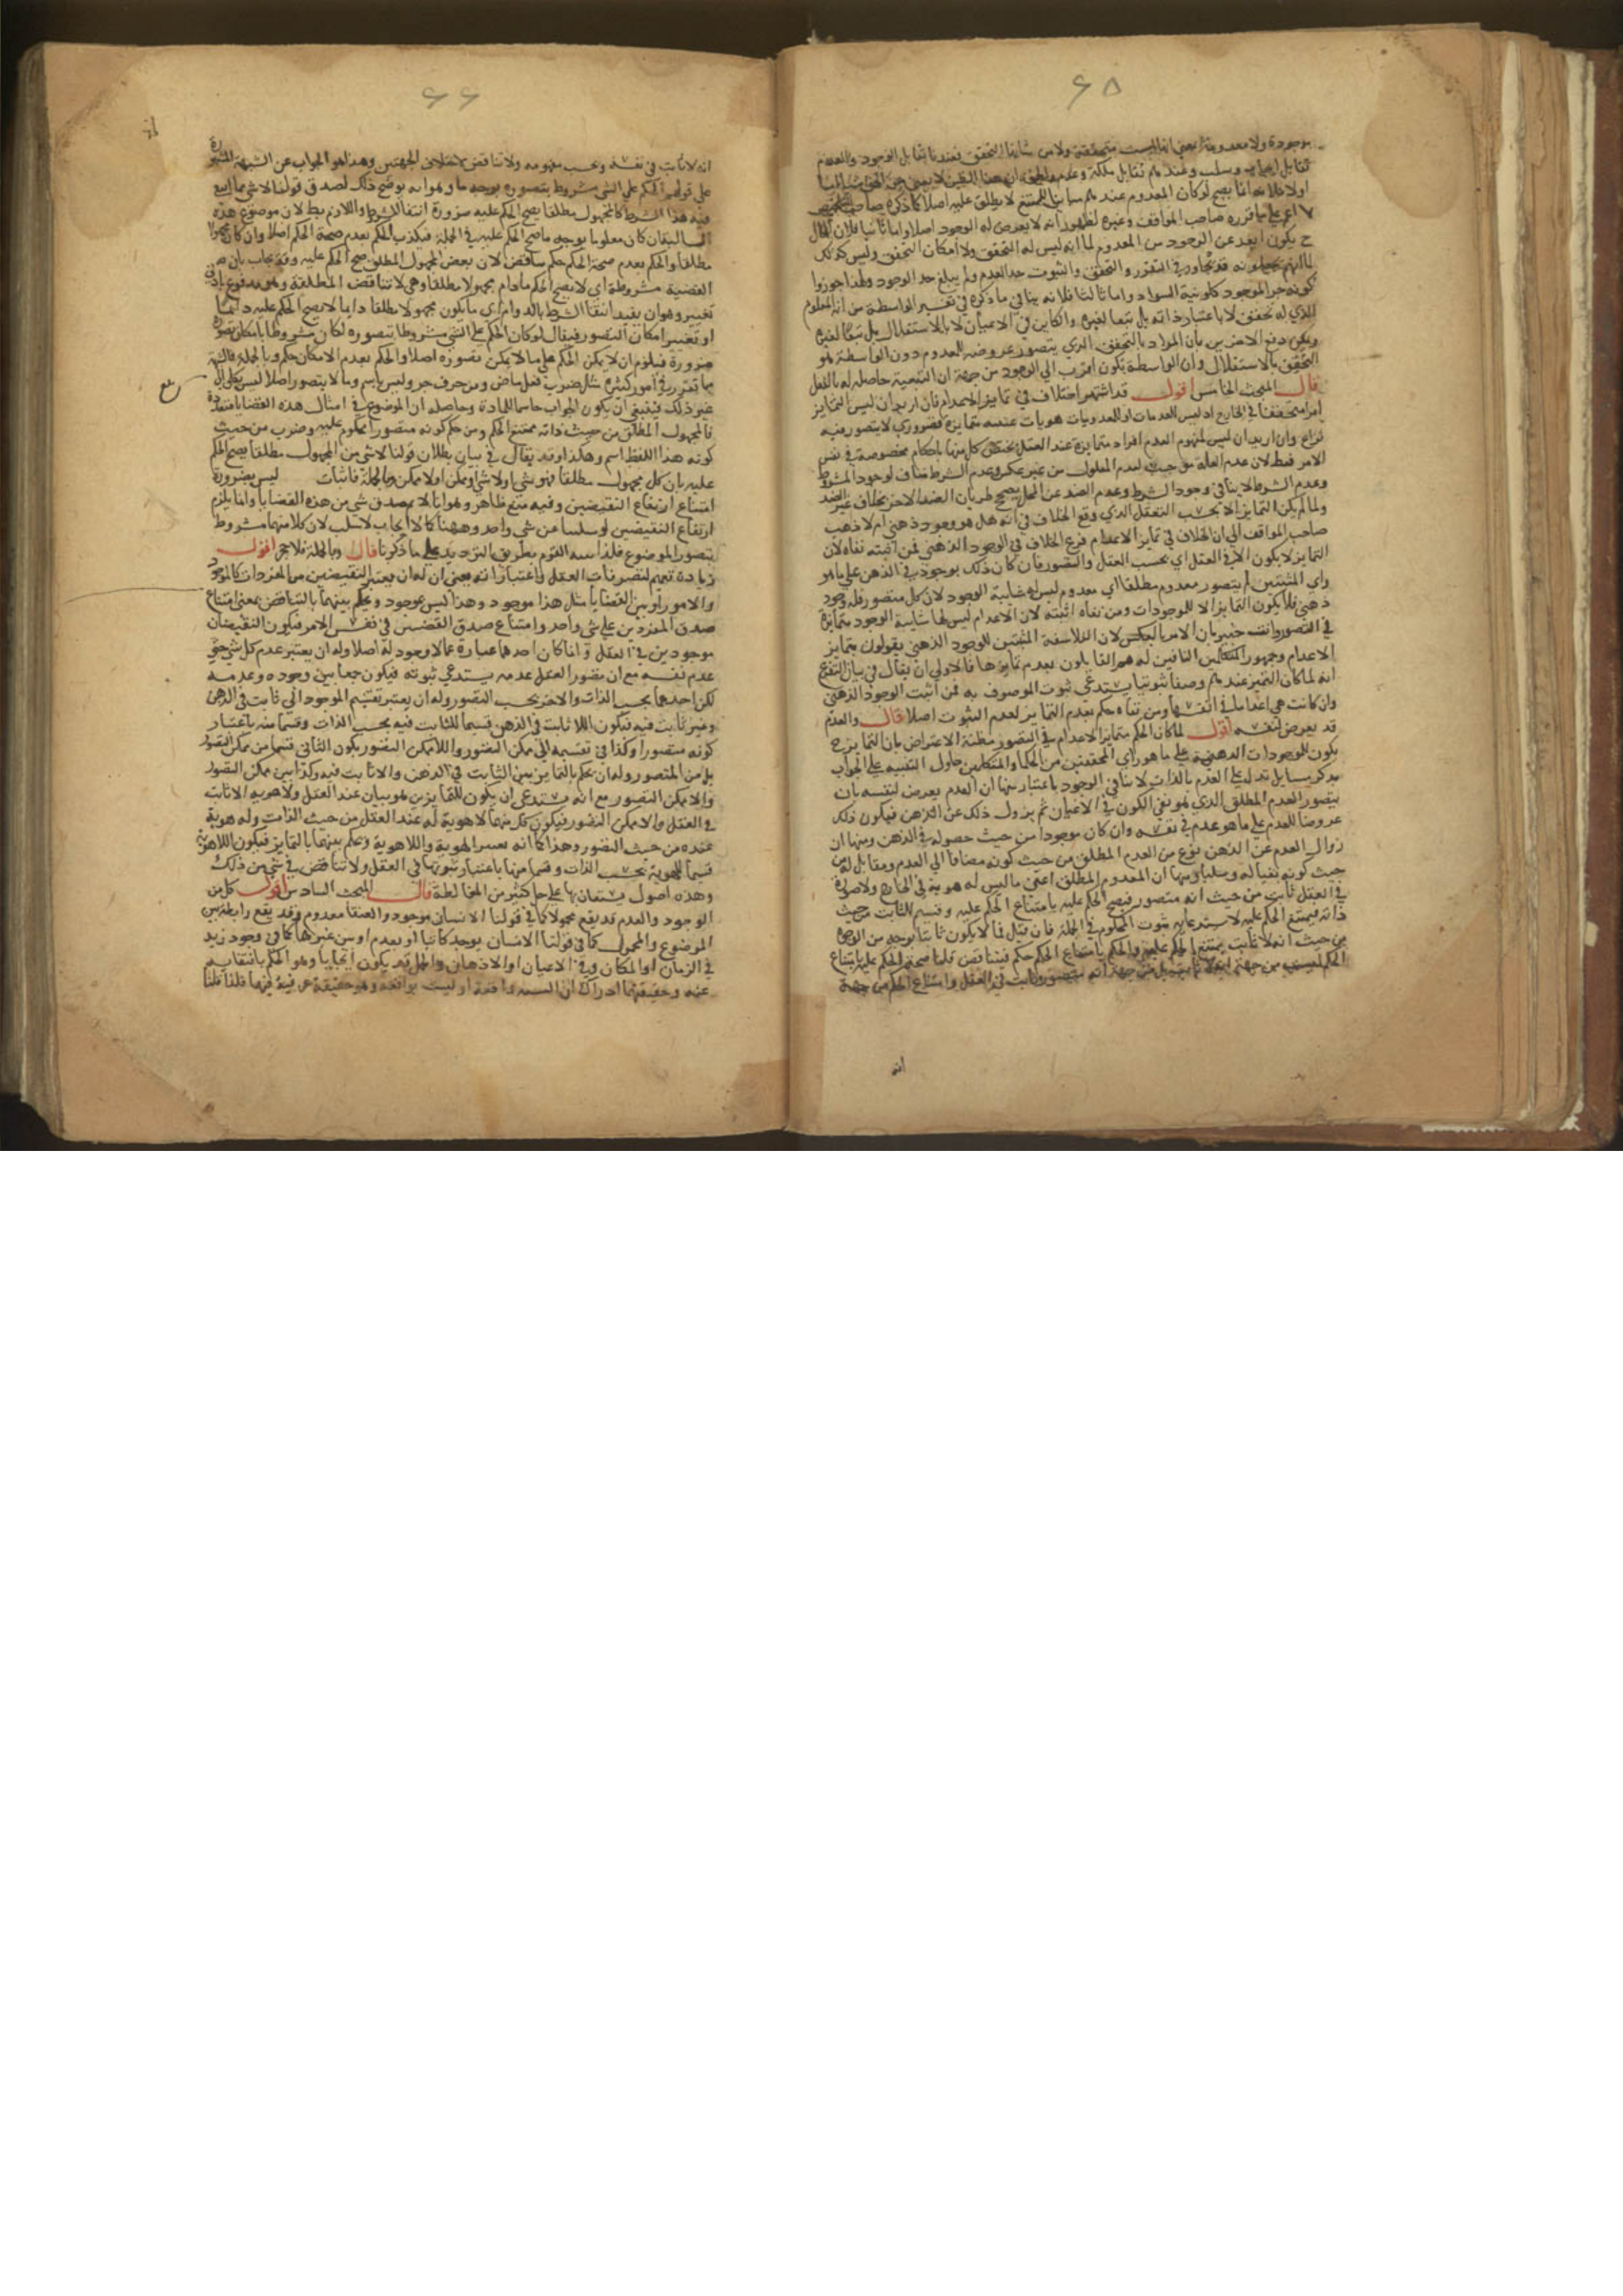 ٦٥
بموجودة ولا معدومة بمعنى انها ليست متحققة ولا من شانها التحقق فعندنا تقابل الوجود والعدم
تقابل ايجاب وسلب وعندهم تقابل ملكة وعدم والحق ان هذا الظن لا يغني من الحق شيئا اما
اولا فلانه انما يصح لو كان المعدوم عندهم مباينا للممتنع لا يطلق عليه اصلا كما ذكره صاحب التلخيص
لا اعم على ما قرره صاحب المواقف وغيره لظهور انه لا يعرض له الوجود اصلا واما ثانيا فلان الحال
ح يكون ابعد عن الوجود من المعدوم لما انه ليس له التحقق ولا امكان التحقق وليس كذلك
لما انهم يجعلونه قد تجاوز في التقرر والتحقق والثبوت حد العدم ولم يبلغ حد الوجود ولهذا جوزوا
كونه جزء الموجود كلونية السواد واما ثالثا فلانه ينافي ما ذكره في تفسير الواسطة من انه المعلوم
الذي له تحقق لا باعتبار ذاته بل تبعا لغيره والكاين في الاعيان لا بالاستقلال بل تبعا لغيره
ويمكن دفع الاخيرين بان المراد بالتحقق الذي يتصور عروضه للمعدوم دون الواسطة هو
التحقق بالاستقلال وان الواسطة تكون اقرب الى الوجود من جهة ان التبعية حاصلة له بالفعل
قال المبحث الخامس اقول قد اشتهر اختلاف في تمايز الاعدام فان اريد ان ليس التمايز
امرا متحققا في الخارج او ليس للعدمات او للعدويات هويات عينيه متمايزة فضروري لا يتصور فيه
نزاع وان اريد ان ليس لمفهوم العدم افراد متمايزة عند العقل يختص كل منها باحكام مخصوصة في نفس
الامر فبط لان عدم العلة موجب لعدم المعلول من غير عكس وعدم الشرط مناف لوجود المشروط
وعدم المشروط لا ينافي وجود الشرط وعدم الضد عن المحل يصحح طريان الضد الاخر بخلاف عدم غير الضد
ولما لم يكن التمايز الا بحسب التعقل الذي وقع الخلاف في انه هل هو وجود ذهني ام لا ذهب
صاحب المواقف الى ان الخلاف في تمايز الاعدام فرع الخلاف في الوجود الذهني فمن اثبته نفاه لان
التمايز لا يكون الا في العقل اي بحسب العقل والتصور فان كان ذلك بوجود في الذهن على ما هو
راي المثبتين لم يتصور معدوم مطلقا اي معدوم ليس له شايبة الوجود لان كل متصور فله وجود
ذهني فلا يكون التمايز الا للموجودات ومن نفاه اثبته لان الاعدام ليس لها شايبة الوجود متمايزة
في التصور وانت خبير بان الامر بالعكس لان الفلاسفة المثبتين للوجود الذهني يقولون بتمايز
الاعدام وجمهور المتكلمين النافين له هم القايلون بعدم تمايزها فالاولى ان يقال في بيان التفرع
انه لما كان التميز عندهم وصفا ثبوتيا يستدعي ثبوت الموصوف به فمن اثبت الوجود الذهني
وان كانت هي اعداما في انفسها ومن نفاه حكم بعدم التمايز لعدم الثبوت اصلا قال والعدم
قد يعرض لنفسه اقول لما كان الحكم بتمايز الاعدام في التصور مظنة الاعتراض بان التمايز ح
يكون للموجودات الذهنية على ما هو راي المحققين من الحكما والمتكلمين حاول التنبيه على الجواب
بذكر مسايل تدل على العدم بالذات لا ينافي الوجود باعتبار منها ان العدم يعرض لنفسه بان
يتصور العدم المطلق الذي هو نفي الكون في الاعيان ثم يزول ذلك عن الذهن فيكون ذلك
عروضا للعدم على ما هو عدم في نفسه وان كان موجودا من حيث حصوله في الذهن ومنها ان
زوال العدم عن الذهن نوع من العدم المطلق من حيث كونه مضافا الى العدم ومقابل له من
حيث كونه نفيا له وسلبا ومنها ان المعدوم المطلق اعني ما ليس له هوية في الخارج ولا صورة
في العقل ثابت من حيث انه متصور فيصح الحكم عليه بامتناع الحكم عليه وقسيم للثابت من حيث
ذاته فيمتنع الحكم عليه لاستدعايه ثبوت المحكوم في الجملة فان قيل فما لا يكون ثابتا بوجه من الوجوه
من حيث انه لا ثابت يمتنع الحكم عليه والحكم بامتناع الحكم حكم فيتناقض قلنا صحة الحكم عليه بامتناع
الحكم ليست من جهة انه لا ثابت بل من جهة انه متصور وثابت في العقل وامتناع الحكم من جهة
انه
٦٦
انه لا ثابت في نفسه وبحسب مفهومه ولا تناقض لاختلاف الجهتين وهذا هو الجواب عن الشبهة المشهورة
على قولهم الحكم على الشي مشروط بتصوره بوجه ما وهو انه لو صح ذلك لصدق قولنا لا شي مما انتفى
فيه هذا الشرط كالمجهول مطلقا يصح الحكم عليه ضرورة انتفا المشروط بانتفا الشرط واللازم بط لان موضوع هذه
السالبة ان كان معلوما بوجه ما صح الحكم عليه في الجملة فيكذب الحكم بعدم صحة الحكم اصلا وان كان مجهولا
مطلقا والحكم بعدم صحة الحكم حكم يناقض لان بعض المجهول المطلق صح الحكم عليه وقد يجاب بان هذه
القضية مشروطة اي لا يصح الحكم ما دام مجهولا مطلقا وهي لا تناقض المطلقة وهو مدفوع بادنى
تغيير وهو ان يقيد انتفا الشرط بالدوام اي ما يكون مجهولا مطلقا دايما لا يصح الحكم عليه دايما
او تعتبر امكان التصور فيقال لو كان الحكم على الشي مشروطا بتصوره لكان مشروطا بامكان تصوره
ضرورة فيلزم ان لا يمكن الحكم على ما لا يمكن تصوره اصلا والحكم بعدم الامكان حكم وبالجملة فالشبهة
مما تقرر في امور كثيرة مثل ضرب فعل ماض ومن حرف جر وليس باسم وما لا يتصور اصلا ليس بكلي الى
غير ذلك فينبغي ان يكون الجواب حاسما للمادة وحاصله ان الموضوع في امثال هذه القضايا متعدد
فالمجهول المطلق من حيث ذاته ممتنع الحكم ومن حكم كونه متصورا محكوم عليه وضرب من حيث
كونه هذا اللفظ اسم وهكذا وقد يقال في بيان بطلان قولنا لا شي من المجهول مطلقا يصح الحكم
عليه بان كل مجهول مطلقا فهو شي او لا شي او ممكن او لا ممكن وبالجملة فاثبات ليس بضرورة
امتناع ارتفاع النقيضين وفيه منع ظاهر وهو انا لا نم صدق شي من هذه القضايا وانما يلزم
ارتفاع النقيضين لو سلبا عن شي واحد وههنا كما لا ايجاب لا سلب لان كلا منهما مشروط
بتصور الموضوع فلذا بينه القوم بطريق الترديد على ما ذكرنا قال وبالجملة فلا حجر اقول
زيادة تعميم لتصرفات العقل واعتباراته بمعنى ان له ان يعتبر النقيضين من المفردات كالموجود
والاموجود او بين القضايا مثل هذا موجود وهذا ليس بموجود ويحكم بينهما بالتناقض بمعنى امتناع
صدق المفردين على شي واحد وامتناع صدق القضيتين في نفس الامر فيكون النقيضان
موجودين في العقل وانما كان احدهما عبارة عما لا وجود له اصلا وله ان يعتبر عدم كل شي حتى
عدم نفسه مع ان تصور العقل عدمه يستدعي ثبوته فيكون جمعا بين وجوده وعدمه
لكن احدهما بحسب الذات والاخر بحسب التصور وله ان يعتبر تقسيم الموجود الى ثابت في الذهن
وغير ثابت فيه فيكون اللا ثابت في الذهن قسيما للثابت فيه بحسب الذات وقسما منه باعتبار
كونه متصورا وكذا في تقسيمه الى ممكن التصور واللا ممكن التصور يكون الثاني قسما من ممكن التصور
بل من المتصور وله ان يحكم بالتمايز بين الثابت في الذهن والا ثابت فيه وكذا بين ممكن التصور
والا ممكن التصور مع انه يستدعي ان يكون للتمايزين هويتان عند العقل ولا هوية للا ثابت
في العقل والا ممكن التصور فيكون كل منهما لا هوية له عند العقل من حيث الذات وله هوية
عنده من حيث التصور وهذا كما انه يعتبر الهوية واللا هوية ويحكم بينهما بالتمايز فيكون اللا هوية
قسيما للهوية بحسب الذات وقسما منها باعتبار ثبوتها في العقل ولا تناقض في شي من ذلك
وهذه اصول يستعان بها على حل كثير من المغالطة قال المبحث السادس اقول كل من
الوجود والعدم قد يقع محمولا كما في قولنا الانسان موجود والعنقا معدوم وقد يقع رابطة بين
الموضوع والمحمول كما في قولنا الانسان يوجد كاتبا او يعدم او بين غيرهما كما في وجود زيد
في الزمان او المكان وفي الاعيان او الاذهان والحمل قد يكون ايجابيا وهو الحكم بانتفايه
عنه وحقيقتهما ادراك ان النسبة واقعة او ليست بواقعة وهو حقيقة عرفية فيهما فلذا قلنا